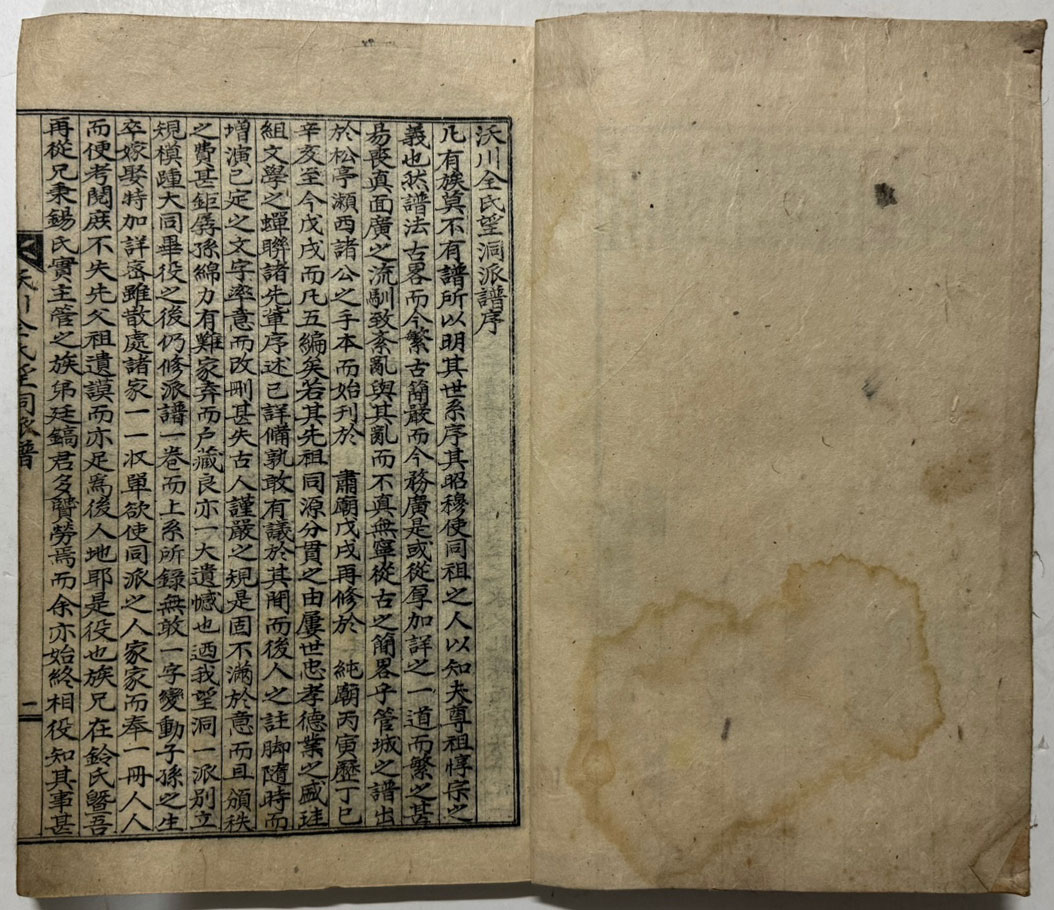 沃川全氏望洞派譜序
凡有族莫不有譜所以明其世系序其昭穆使同祖之人以知夫尊祖惇宗之
義也然譜法古畧而今繁古簡嚴而今務廣是或從厚加詳之一道而繁之甚
易喪真面廣之流馴致紊亂與其亂而不真無寧從古之簡畧乎管城之譜出
於松亭瀨西諸公之手本而始刊於 肅廟戊戌再修於 純廟丙寅歷丁巳
辛亥至今戊戌而凡五編矣若其先祖同源分貫之由屢世忠孝德業之盛珪
組文學之蟬聯諸先輩序述已詳備孰敢有議於其間而後人之註脚隨時而
增演已定之文字率意而改刪甚失古人謹嚴之規是固不滿於意而且頒秩
之費甚鉅孱孫綿力有難家弆而戶藏良亦一大遺憾也迺我望洞一派別立
規模踵大同畢役之後仍修派譜一卷而上系所錄無敢一字變動子孫之生
卒嫁娶特加詳密雖散處諸家一一收單欲使同派之人家家而奉一冊人人
而便考閱庶不失先父祖遺謨而亦足爲後人地耶是役也族兄在鈴氏曁吾
再從兄秉錫氏實主管之族弟廷鎬君多贒勞焉而余亦始終相役知其事甚
沃川全氏望洞派譜
一